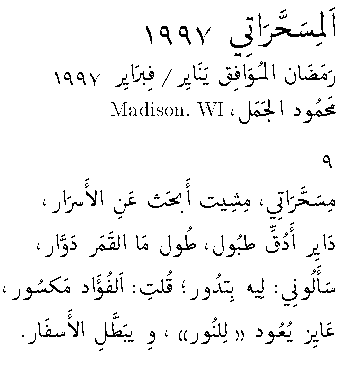 اَلمِسَحَّرَاتِي ١٩٩٧
رَمَضَان المُوَافِق يَنَايِر / فِبرَايِر ١٩٩٧
مَحمُود الجَمَل، Madison, WI
٩
مِسَحَّرَاتِي، مِشِيت أَبحَث عَنِ الأَسرَار،
دَايِر أَدُقِّ طبُول، طُول مَا القَمَر دَوَّار،
سَأَلُونِي: لِيه بِتدُور؟ قُلتِ: اَلفُؤَاد مَكسُور،
عَايِز يُعُود «لِلنُور»، وِ يبَطَّلِ الأَسفَار.